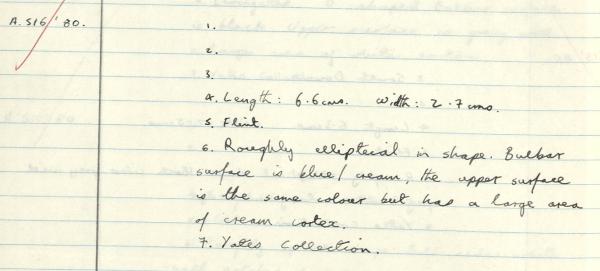 A.516/'80.
1.
2.
3.
4. Length: 6.6cms. width: 2.7cms.
5. Flint.
6. Roughly ellipteial in shape. Bulbar
surface is blue/cream, the upper surface
is the same colour but has a large area
of cream cortex.
7. Yates Collection.